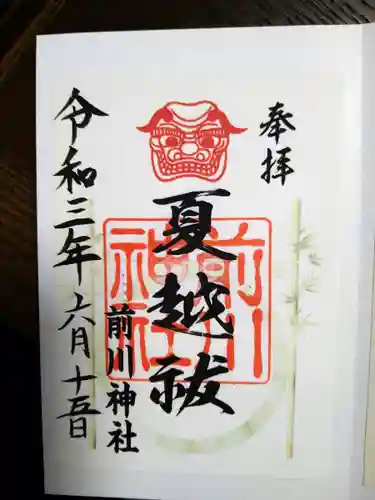 奉拝
夏越祓
前川神社
前川神社
令和三年六月十五日